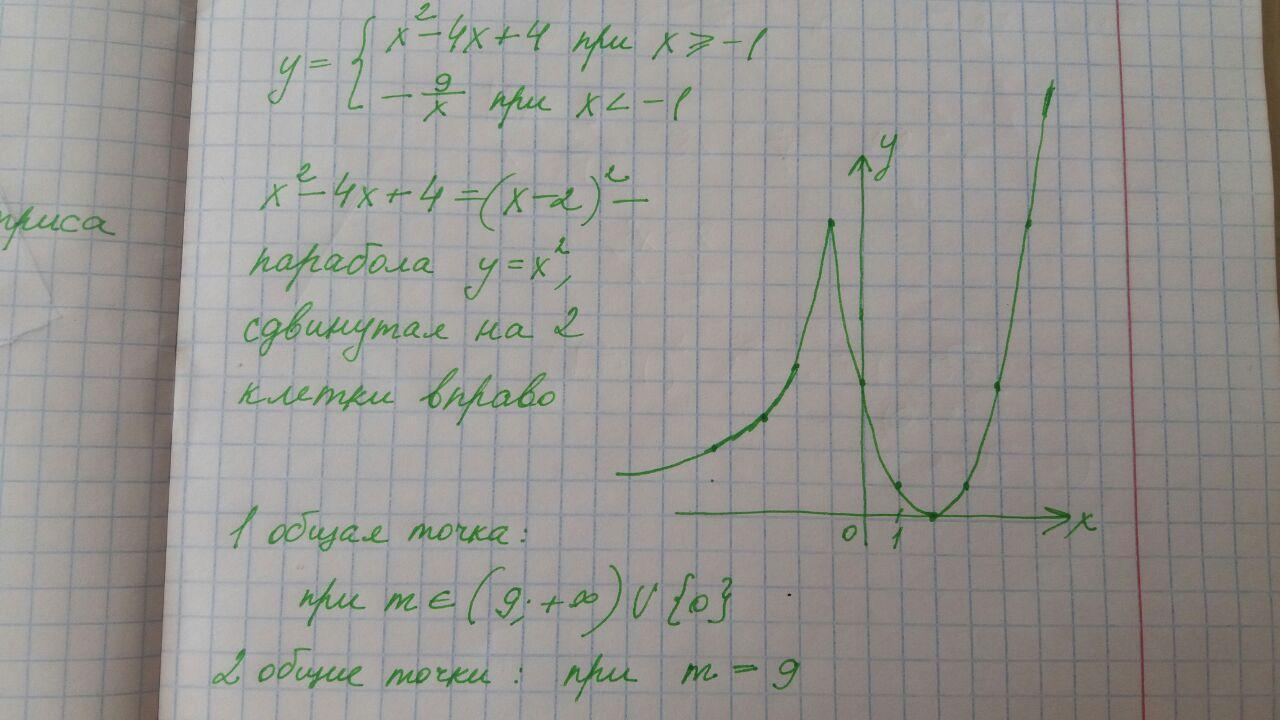 y = { x² - 4x + 4 при x ≥ -1
- 9/x при x < -1
x² - 4x + 4 = (x - 2)² -
парабола y = x²,
сдвинутая на 2
клетки вправо
y
0 1 x
1 общая точка:
при m ∈ (9; +∞) ∪ {0}
2 общие точки: при m = 9